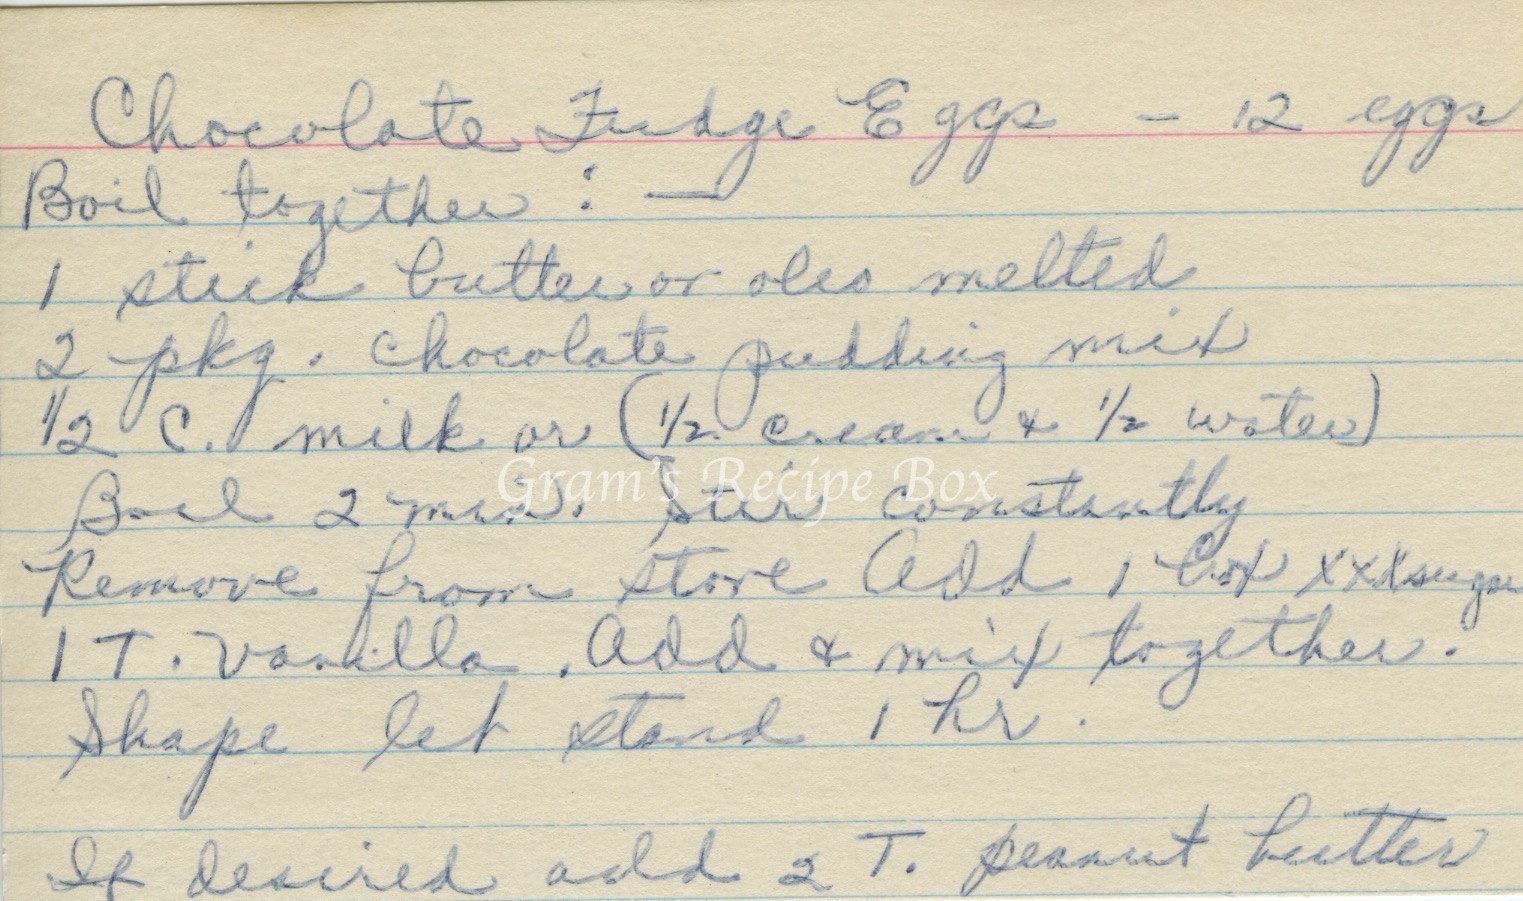 Chocolate Fudge Eggs - 12 eggs
Boil together : —
1 stick butter or oleo melted
2 pkg. chocolate pudding mix
1/2 C. milk or (1/2 cream & 1/2 water)
Gram's Recipe Box
Boil 2 min. Stir constantly
Remove from stove Add 1 box XXX sugar
1 T. vanilla. Add & mix together.
Shape let stand 1 hr.
If desired add 2 T. peanut butter